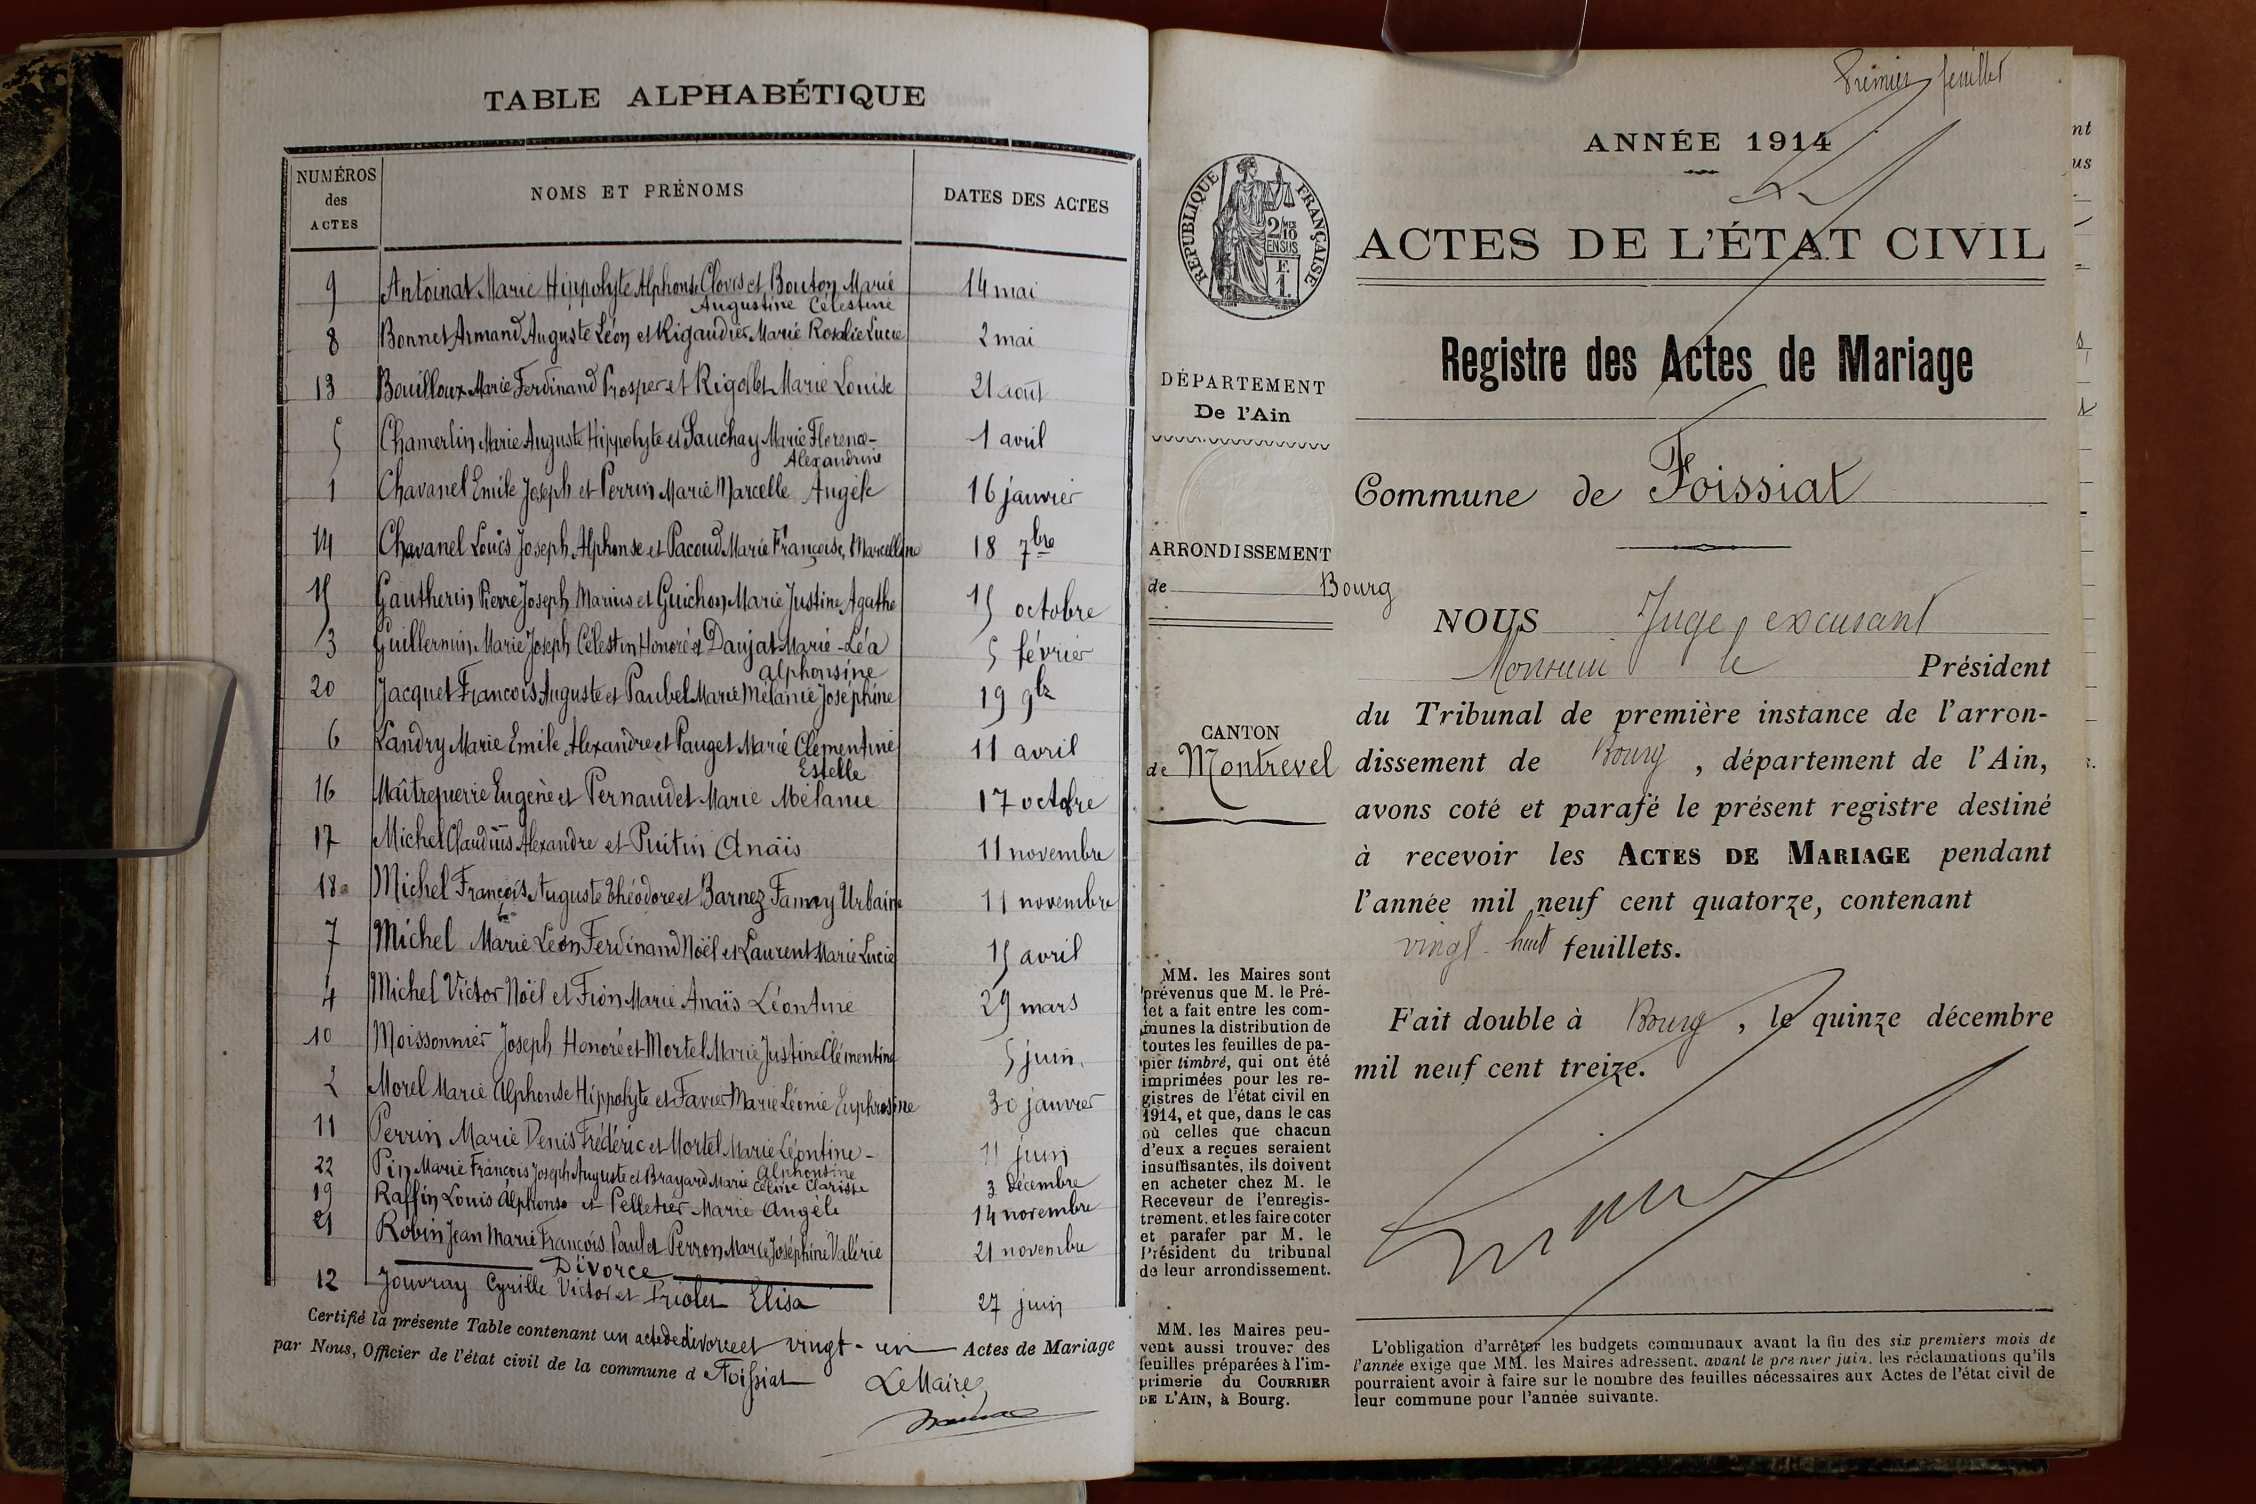 TABLE ALPHABÉTIQUE
NUMÉROS des ACTES
NOMS ET PRÉNOMS
DATES DES ACTES
9 Antoinat Marie Hippolyte Alphonse Clovis et Bouton Marie 14 mai
Augustine Célestine
8 Bonnet Armand Auguste Léon et Rigaudier Marie Rosalie Lucie 2 mai
13 Bouilloux Marie Ferdinand Prosper et Rigollet Marie Louise 21 août
5 Chamerlin Marie Auguste Hippolyte et Sauchay Marie Florence- 1 avril
Alexandrine
1 Chavanel Emile Joseph et Perrin Marie Marcelle Angèle 16 janvier
14 Chavanel Louis Joseph Alphonse et Pacoud Marie Françoise, Marcelline 18 7bre
15 Gautherin Pierre Joseph Marius et Guichon Marie Justine Agathe 15 octobre
3 Guillermin Marie Joseph Célestin Honoré et Daujat Marie-Léa 5 février
alphonsine
20 Jacquet François Auguste et Paubel Marie Mélanie Joséphine 19 9br
6 Landry Marie Emile Alexandre et Pauget Marie Clémentine 11 avril
Estelle
16 Maîtrepierre Eugène et Pernaudet Marie Mélanie 17 octobre
17 Michel Claudius Alexandre et Puitin Anaïs 11 novembre
18 Michel François Auguste Théodore et Barnez Fanny Urbaine 11 novembre
7 Michel Marie Léon Ferdinand Noël et Laurent Marie Lucie 15 avril
4 Michel Victor Noël et Fion Marie Anaïs Léontine 29 mars
10 Moissonnier Joseph Honoré et Mortel Marie Justine Clémentine 5 juin.
2 Morel Marie Alphonse Hippolyte et Favier Marie Léonie Euphrosine 30 janvier
11 Perrin Marie Denis Frédéric et Mortel Marie Léontine- 11 juin
Alphonsine
22 Pin Marie François Joseph Auguste et Brayard Marie Céline Clarisse 3 décembre
19 Raffin Louis Alphonse et Pelletier Marie Angèle 14 novembre
21 Robin Jean Marie François Paul et Perron Marie Joséphine Valérie 21 novembre
Divorce
12 Jouvray Cyrille Victor et Priolet Elisa 27 juin
Certifié la présente Table contenant un acte de divorce et vingt-un Actes de Mariage
par Nous, Officier de l'état civil de la commune d Foissiat
Le Maire,
Premier feuillet
ANNÉE 1914
RÉPUBLIQUE FRANÇAISE
2/10 MES
EN SUS
F.
1.
ACTES DE L'ÉTAT CIVIL
Registre des Actes de Mariage
DÉPARTEMENT
De l'Ain
Commune de Foissiat
ARRONDISSEMENT
de Bourg
CANTON
de Montrevel
NOUS Juge, excusant
Monsieur le Président
du Tribunal de première instance de l'arron-
dissement de Bourg, département de l'Ain,
avons coté et parafé le présent registre destiné
à recevoir les ACTES DE MARIAGE pendant
l'année mil neuf cent quatorze, contenant
vingt-huit feuillets.
Fait double à Bourg, le quinze décembre
mil neuf cent treize.
MM. les Maires sont
prévenus que M. le Pré-
fet a fait entre les com-
munes la distribution de
toutes les feuilles de pa-
pier timbré, qui ont été
imprimées pour les re-
gistres de l'état civil en
1914, et que, dans le cas
où celles que chacun
d'eux a reçues seraient
insuffisantes, ils doivent
en acheter chez M. le
Receveur de l'enregis-
trement, et les faire coter
et parafer par M. le
Président du tribunal
de leur arrondissement.
MM. les Maires peu-
vent aussi trouver des
feuilles préparées à l'im-
primerie du COURRIER
DE L'AIN, à Bourg.
L'obligation d'arrêter les budgets communaux avant la fin des six premiers mois de
l'année exige que MM. les Maires adressent, avant le premier juin, les réclamations qu'ils
pourraient avoir à faire sur le nombre des feuilles nécessaires aux Actes de l'état civil de
leur commune pour l'année suivante.